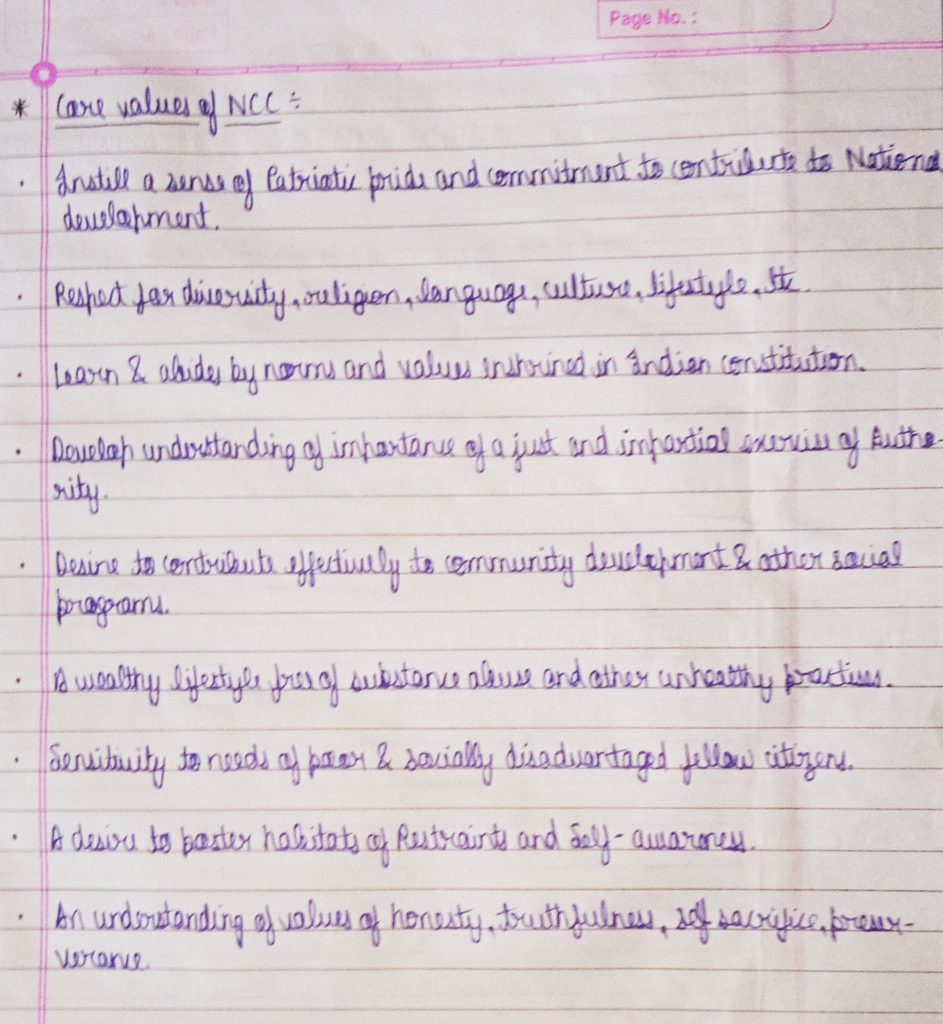 Page No. :
* Core values of NCC :
· Instill a sense of Patriotic pride and commitment to contribute to National
development.
· Respect for diversity, religion, language, culture, lifestyle, etc.
· Learn & abides by norms and values enshrined in Indian constitution.
· Develop understanding of importance of a just and impartial exercise of Autho-
rity.
· Desire to contribute effectively to community development & other social
programs.
· A wealthy lifestyle free of substance abuse and other unhealthy practices.
· Sensitivity to needs of poor & socially disadvantaged fellow citizens.
· A desire to boster habitats of Restraints and Self-awareness.
· An understanding of values of honesty, truthfulness, self sacrifice, preser-
verance.